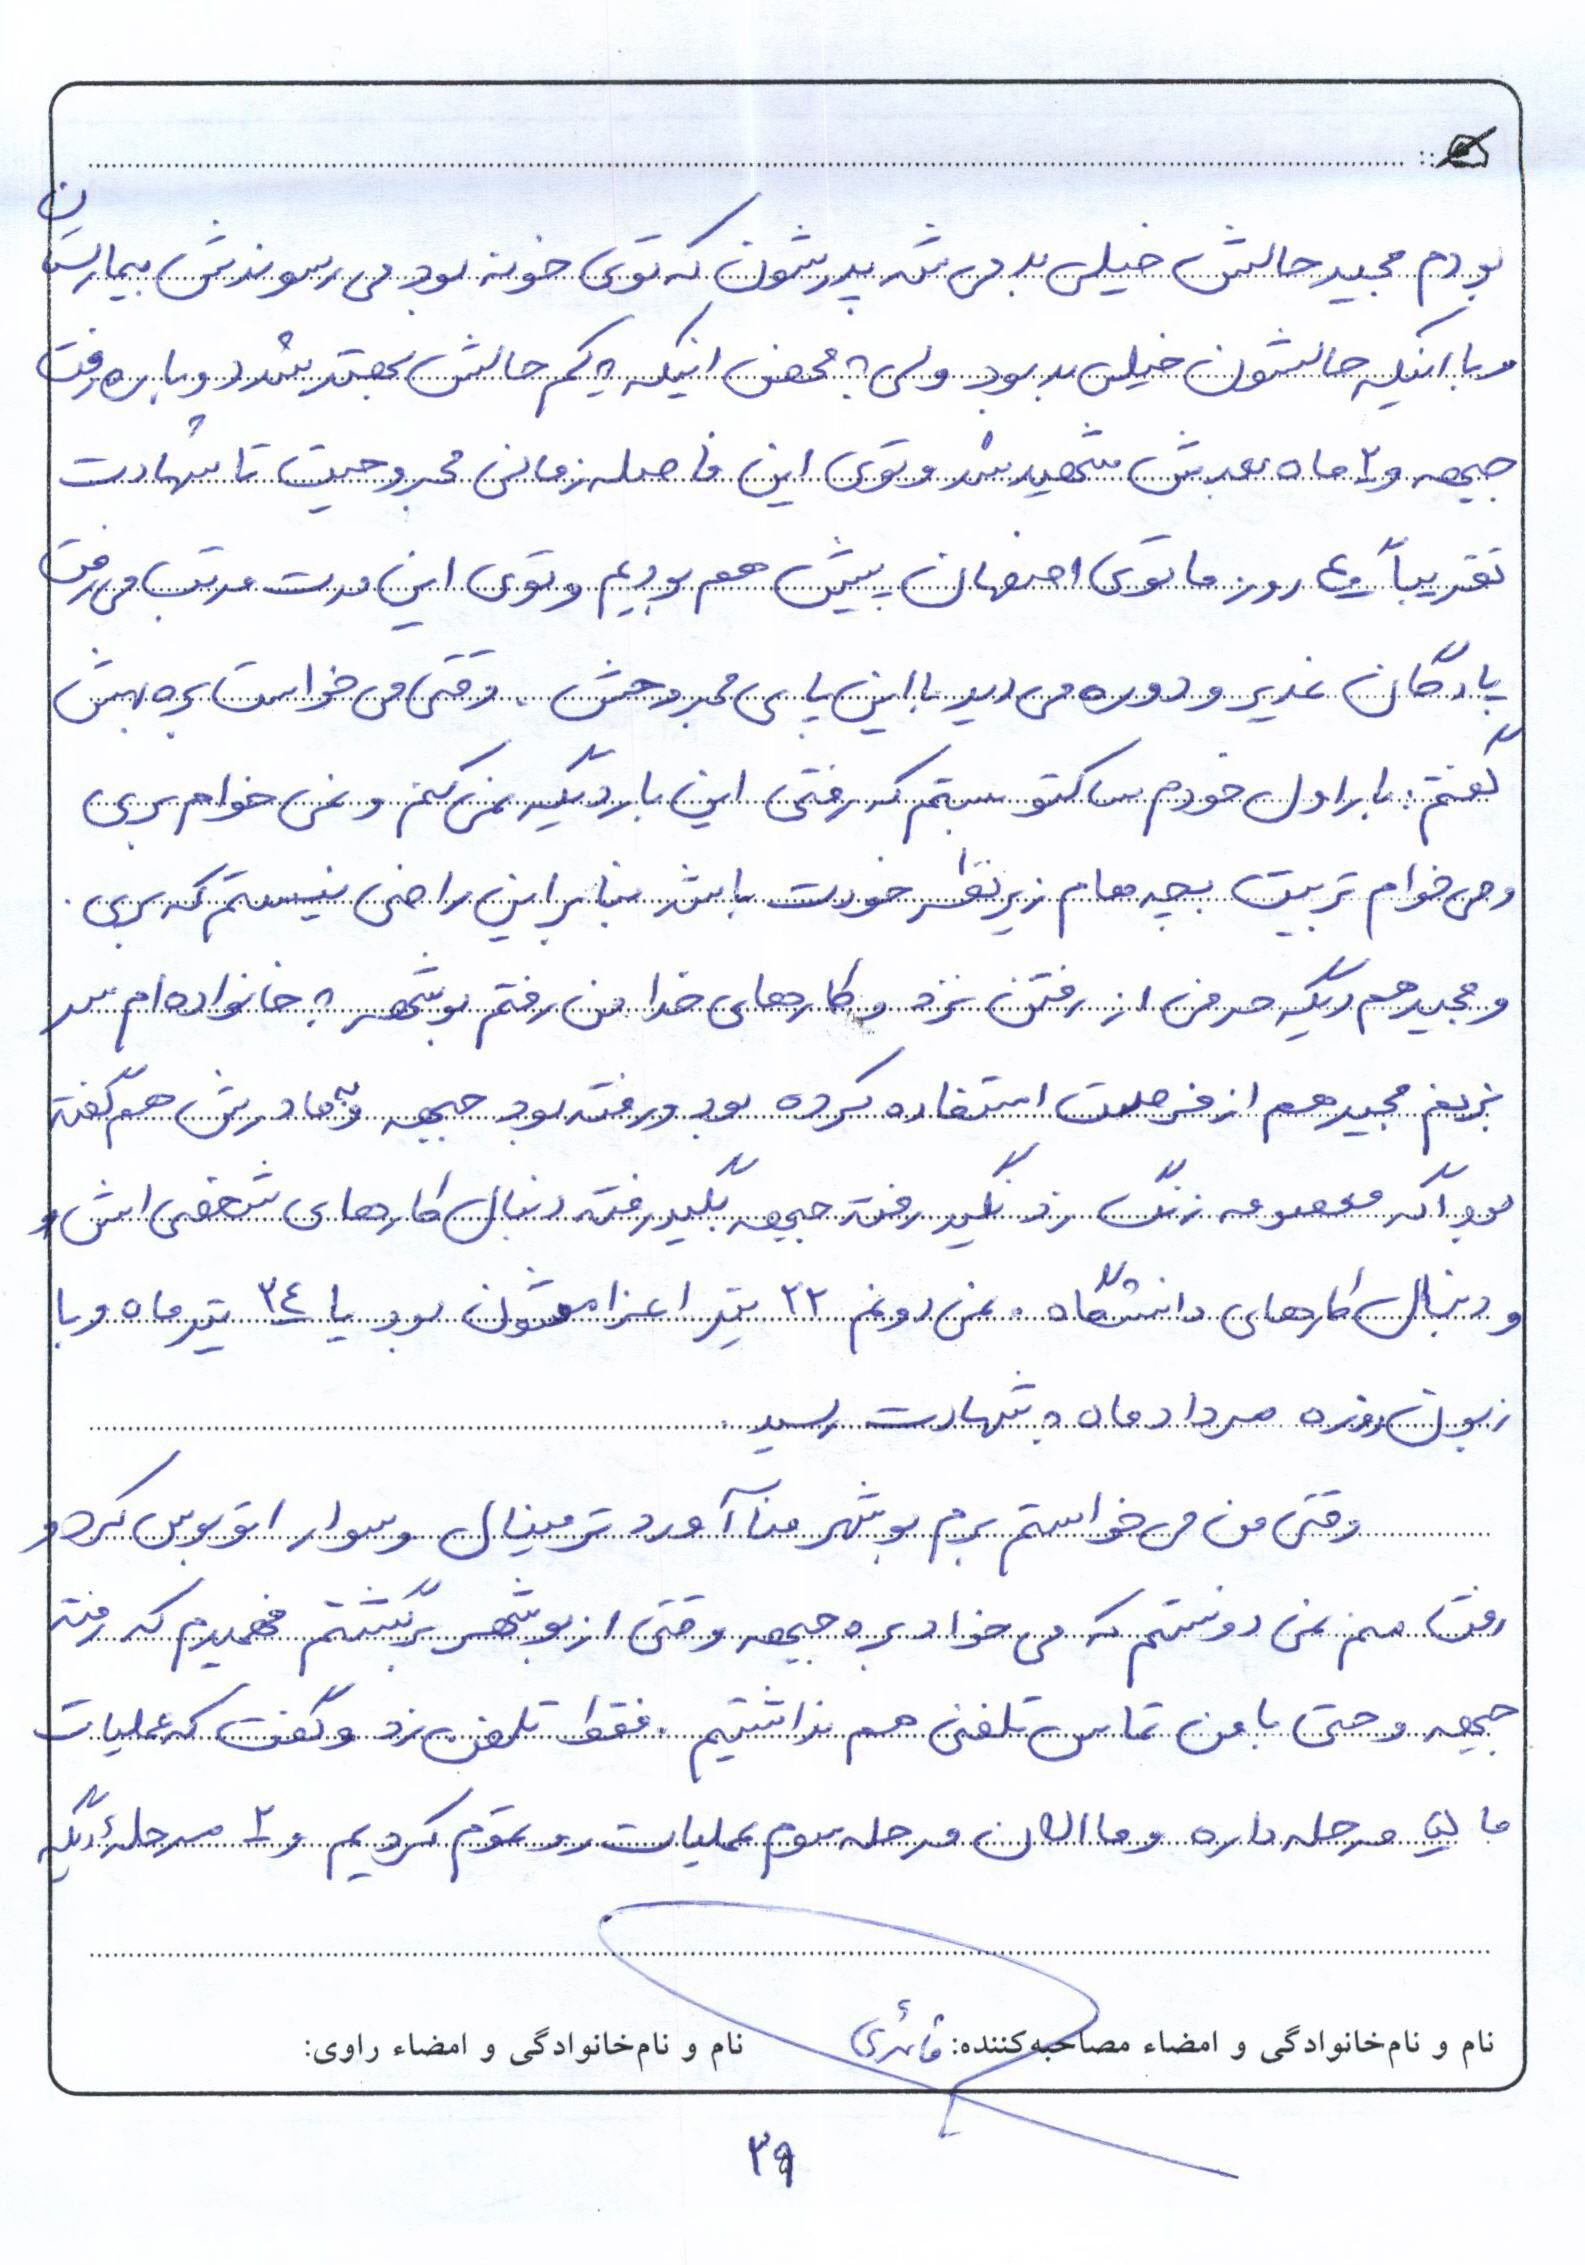 بودم مجید حالش خیلی بد می‌شه پدرشون که توی خونه بود می رسوندش بیمارستان
و با اینکه حالشون خیلی بد بود ولی به محض اینکه یکم حالش بهتر شد دوباره رفت
جبهه و ۲ ماه بعدش شهید شد و توی این فاصله زمانی مجروحیت تا شهادت
تقریباً ۴۰ روز ما توی اصفهان پیش هم بودیم و توی این مدت مرتب می‌رفت
پادگان غدیر و دوره می‌دید با این پای مجروحش . وقتی می خواست بره بهش
گفتم : بار اول خودم ساکتو بستم که رفتی این بار دیگه نمی‌کنم و نمی خوام بری
و می‌خوام تربیت بچه هام زیر نظر خودت باشد بنابراین راضی نیستم که بری .
و مجید هم دیگه حرفی از رفتن نزد و کارهای خدا من رفتم بوشهر به خانواده ام سر
بزنم مجید هم از فرصت استفاده کرده بود و رفته بود جبهه و به مادرش هم گفته
بود اگه معصومه زنگ زد نگید رفته جبهه بگید رفته دنبال کارهای شخصی اش و
و دنبال کارهای دانشگاه . نمی دونم ۲۲ تیر اعزامشون بود یا ۲۴ تیر ماه و با
زبون روزه مرداد ماه به شهادت رسید .
وقتی من می خواستم برم بوشهر منا آورد ترمینال و سوار اتوبوس کرد و
رفت منم نمی دونستم که می خواد بره جبهه وقتی از بوشهر برگشتم فهمیدم که رفته
جبهه و حتی با من تماس تلفنی هم نداشتیم . فقط تلفن زد و گفت که عملیات
ما ۵ مرحله داره و ما الان مرحله سوم عملیات رو تموم کردیم و ۲ مرحلهٔ دیگه
نام و نام‌خانوادگی و امضاء مصاحبه‌کننده: قائدی
نام و نام‌خانوادگی و امضاء راوی:
۳۹